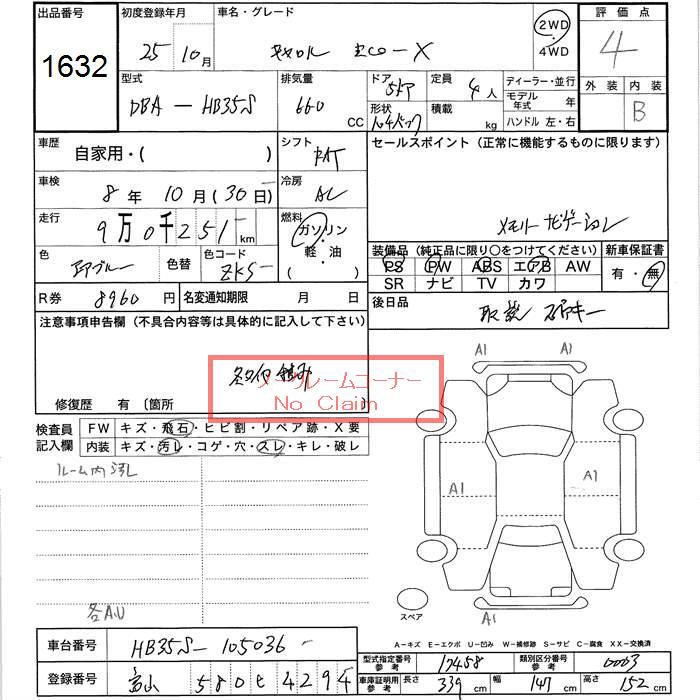 出品番号 初度登録年月 車名・グレード 2WD 評価点
1632 25 10月 キャロル ECO-X ・ 4
4WD
型式 排気量 ドア 5ドア 定員 4人 ディーラー・並行 外装 内装
DBA-HB35S 660 CC 形状 積載 kg モデル年式 年 B
ハンドル 左・右
車歴 自家用・( ) シフト FAT セールスポイント (正常に機能するものに限ります)
車検 8年 10月(30日) 冷房 AC
メモリーナビゲーション
走行 9万0千251km 燃料 ガソリン・軽・油 ( )
装備品 (純正品に限り○をつけてください) 新車保証書
色 色替 色コード ZKS
PS PW ABS エアB AW 有・無
SR ナビ TV カワ
R券 8960円 名変通知期限 月 日 後日品 取説
注意事項申告欄 (不具合内容等は具体的に記入して下さい)
メークレームコーナー
No Claim
修復歴 有 〔箇所
A1 A1
検査員記入欄 FW キズ・飛石・ヒビ割・リペア跡・X要
内装 キズ・汚レ・コゲ・穴・スレ・キレ・破レ
ルーム内汚レ
A1 A1
各A,U
スペア A1
A-キズ E-エクボ U-凹み W-補修跡 S-サビ C-腐食 XX-交換済
車台番号 HB35S-105036
型式指定番号参考 17458 類別区分番号参考 0003
登録番号 富山 580 モ 4294
車庫証明用参考 長さ 339cm 幅 147cm 高さ 152cm